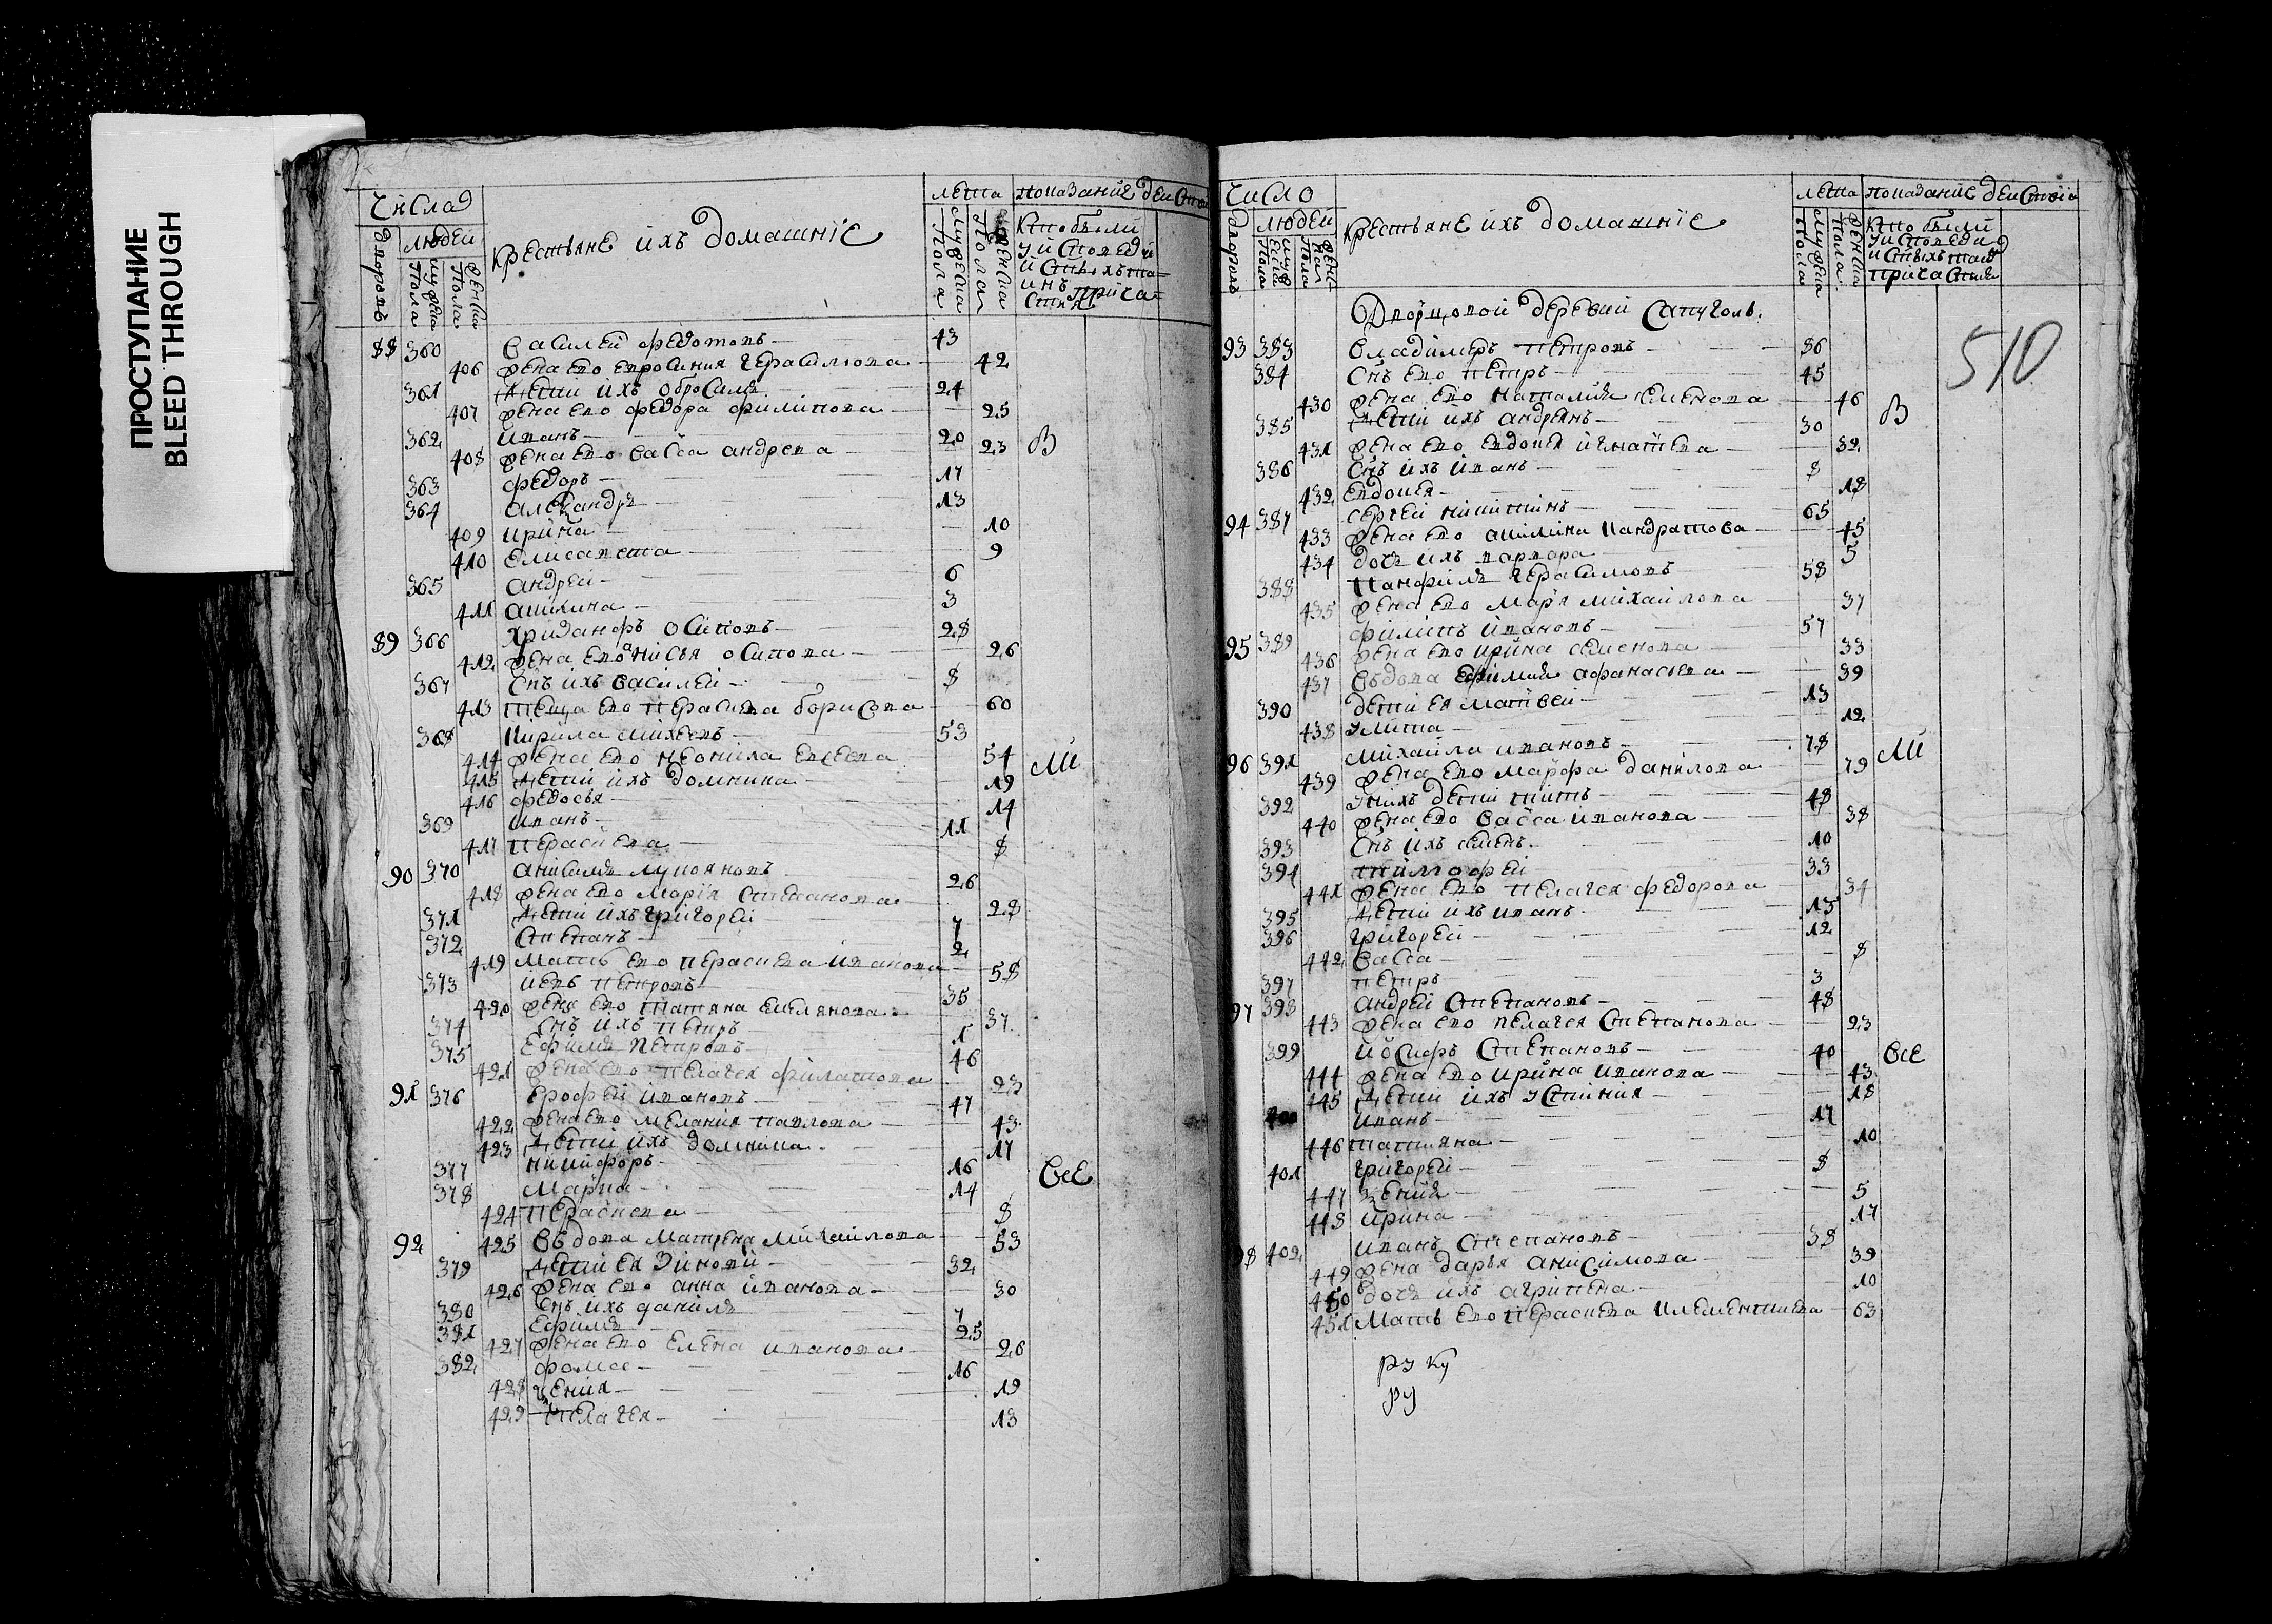 ПРОСТУПАНИЕ
BLEED THROUGH
Числа
дворовъ
людей
мужеска пола
женска пола
крестьяне ихъ домашніе
лета
мужеска пола
женска пола
показание действъ
кто были
у исповеди
и стыхъ та
инъ прича
стия
88 360 василей федотовъ 43
406 жена ево евросиния герасимова 42
361 дети ихъ обросимъ 24
407 жена ево федора филипова 25
362 иванъ 20
408 жена ево васса андрева 23 В
363 федоръ 17
364 александръ 13
409 ирина 10
410 елисавета 9
365 андрей 6
411 акилина 3
89 366 хрисанфъ осиповъ 28
412 жена ево анисья осипова 26
367 снъ ихъ василей 8
413 теща ево пераскева борисова 60
368 кирила михеевъ 53
414 жена ево неонила евсеева 54 Ми
415 дети ихъ домника 19
416 федосья 14
369 иванъ 11
417 пераскева 8
90 370 анисимъ лукояновъ 26
418 жена ево мария степанова 28
371 дети ихъ григорей 7
372 степанъ 2
419 мать ево пераскева иванова 58
373 иевъ петровъ 35
420 жена ево татяна емелянова 37
374 снъ ихъ петръ 1
375 ефимъ петровъ 46
421 жена ево пелагея филатова 23
91 376 ерофей ивановъ 47
422 жена ево мелания павлова 43
423 дети ихъ домника 17
377 никифоръ 16 Все
378 марка 14
424 пераскева 8
92 425 въдова матрена михайлова 53
379 дети ея зиновей 32
426 жена ево анна иванова 30
380 снъ ихъ данилъ 7
381 ефимъ 25
427 жена ево елена иванова 26
382 фома 16
428 ксения 19
429 пелагея 13
Число
дворовъ
людей
мужеска пола
женска пола
крестьяне ихъ домашніе
лета
мужеска пола
женска пола
показание действия
кто были
у исповеди
и стыхъ таи
причастия
510
Дворцовой деревни Сапуголь.
93 383 владимеръ петровъ 86
384 снъ ево петръ 45
430 жена ево наталия семенова 46 В
385 дети ихъ андреянъ 30
431 жена ево евдокея игнатева 32
386 снъ ихъ иванъ 8
432 евдокея 18
94 387 сергей никитинъ 65
433 жена ево акилина кандратова 45
434 дочь ихъ варвара 5
388 панфилъ герасимовъ 58
435 жена ево марья михайлова 37
95 389 филипъ ивановъ 57
436 жена ево ирина семенова 33
437 въдова ефимия афанасьева 39
390 дети ея матвей 13
438 улита 12
96 391 михайла ивановъ 78
439 жена ево марфа данилова 79 Ми
392 у нихъ дети титъ 48
440 жена ево васса иванова 38
393 снъ ихъ семенъ 10
394 тимофей 33
441 жена ево пелагея федорова 34
395 дети ихъ иванъ 15
396 григорей 12
442 васса 8
397 петръ 3
97 398 андрей степановъ 48
443 жена ево пелагея степанова 23
399 иосифъ степановъ 40 Все
444 жена ево ирина иванова 43
445 дети ихъ устиния 18
400 иванъ 17
446 татияна 10
401 григорей 8
447 ксения 5
448 ирина 17
98 402 иванъ степановъ 38
449 жена дарья анисимова 39
450 дочь ихъ агрипена 10
451 мать ево пераскева клементиева 63
ру ку
ру